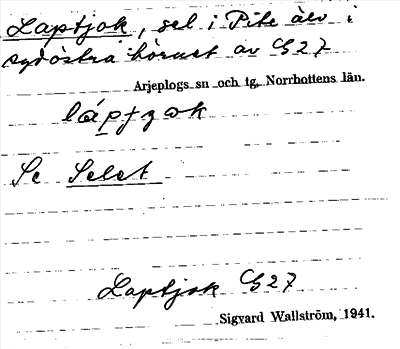 Laptjok, sel i Pite älv i
sydöstra hörnet av G27
Arjeplogs sn och tg, Norrbottens län.
láptjok
Se Selet
Laptjok G27
Sigvard Wallström, 1941.